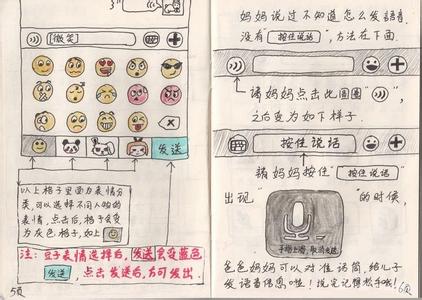 [微笑]
发送
以上格子里面为表情分
类,可以选择不同人物的
表情,点击后,格子会变
为灰色格子,如上
注:豆子表情选择后,发送会变蓝色
发送,点击发送后,方可发出.
5页
妈妈说过不知道怎么发语音.
没有"按住说话",方法在下面.
请妈妈点击此圆圈"",
之后变为如下样子.
按住说话
请妈妈按住"按住说话"
出现""的时候,
手指上滑,取消发送
爸爸妈妈可以对准话筒,给儿子
发语音信息啦!说完记得松手哦!
6页